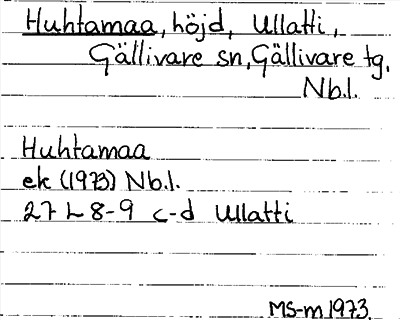 Huhtamaa, höjd, Ullatti,
Gällivare sn, Gällivare tg,
Nb.l.
Huhtamaa
ek (1973) Nb.l.
27 L 8-9 c-d Ullatti
MS-m 1973.